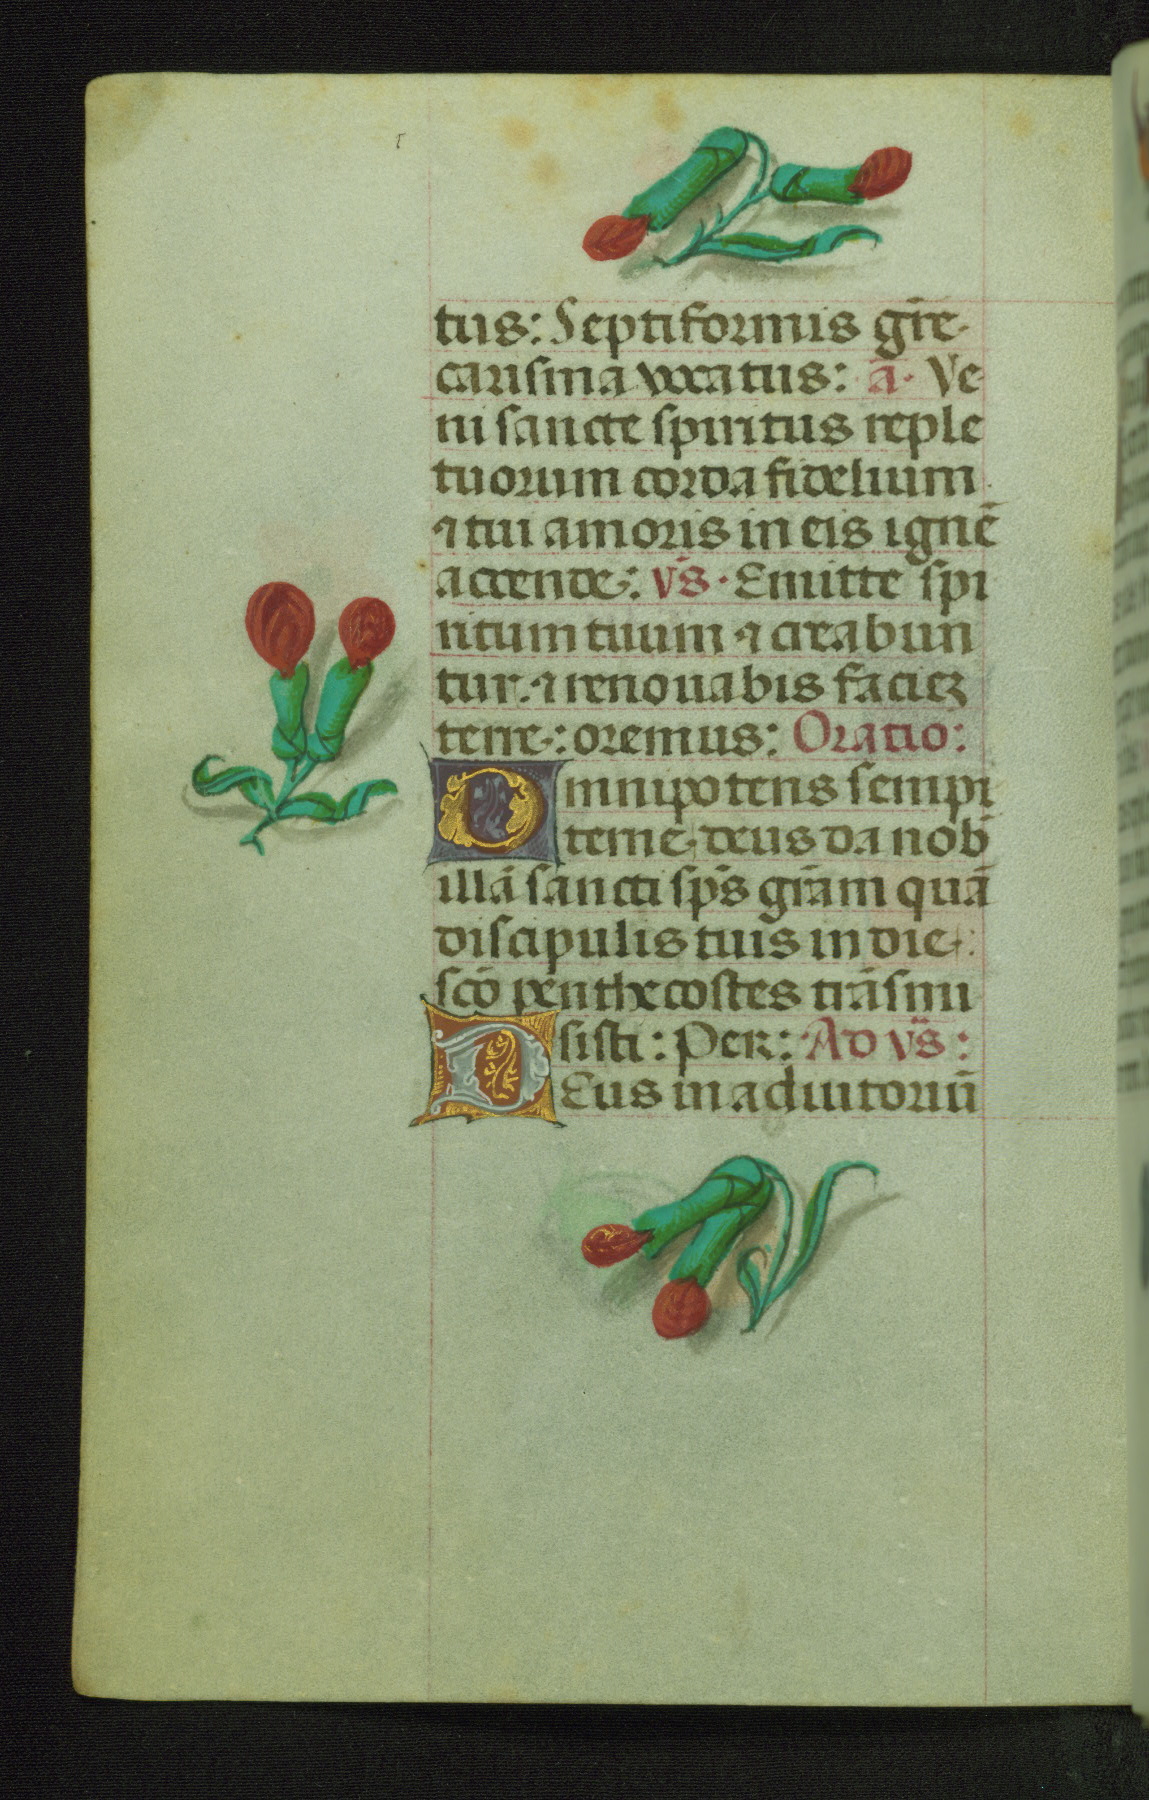 tus: Septiformis gr̄e
carisma vocatus: a̅· Ve
ni sancte spiritus reple
tuorum corda fidelium
⁊ tui amoris in eis ignē
accende: vs̄· Emitte spi
ritum tuum ⁊ creabun
tur· ⁊ renouabis faciez
terre: oremus: Oratio:
Omnipotens sempi
terne deus da nob̄
illā sancti sp̄s gr̄am quā
discipulis tuis in die
sc̄o penthecostes trāsmi
sisti: Per: Ad vs̄:
DEus in adiutoriū